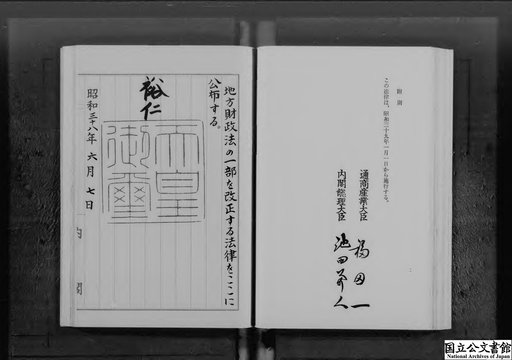 附則
この法律は、昭和三十九年一月一日から施行する。
通商産業大臣 福田一
内閣総理大臣 池田勇人
地方財政法の一部を改正する法律をここに
公布する。
裕仁
天皇
御璽
昭和三十八年六月七日
内閣
国立公文書館
National Archives of Japan